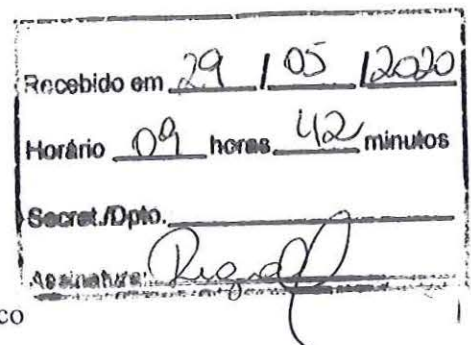 Recebido em 29 / 05 / 2020
Horário 09 horas 42 minutos
Secret./Dpto.
Assinatura:
co